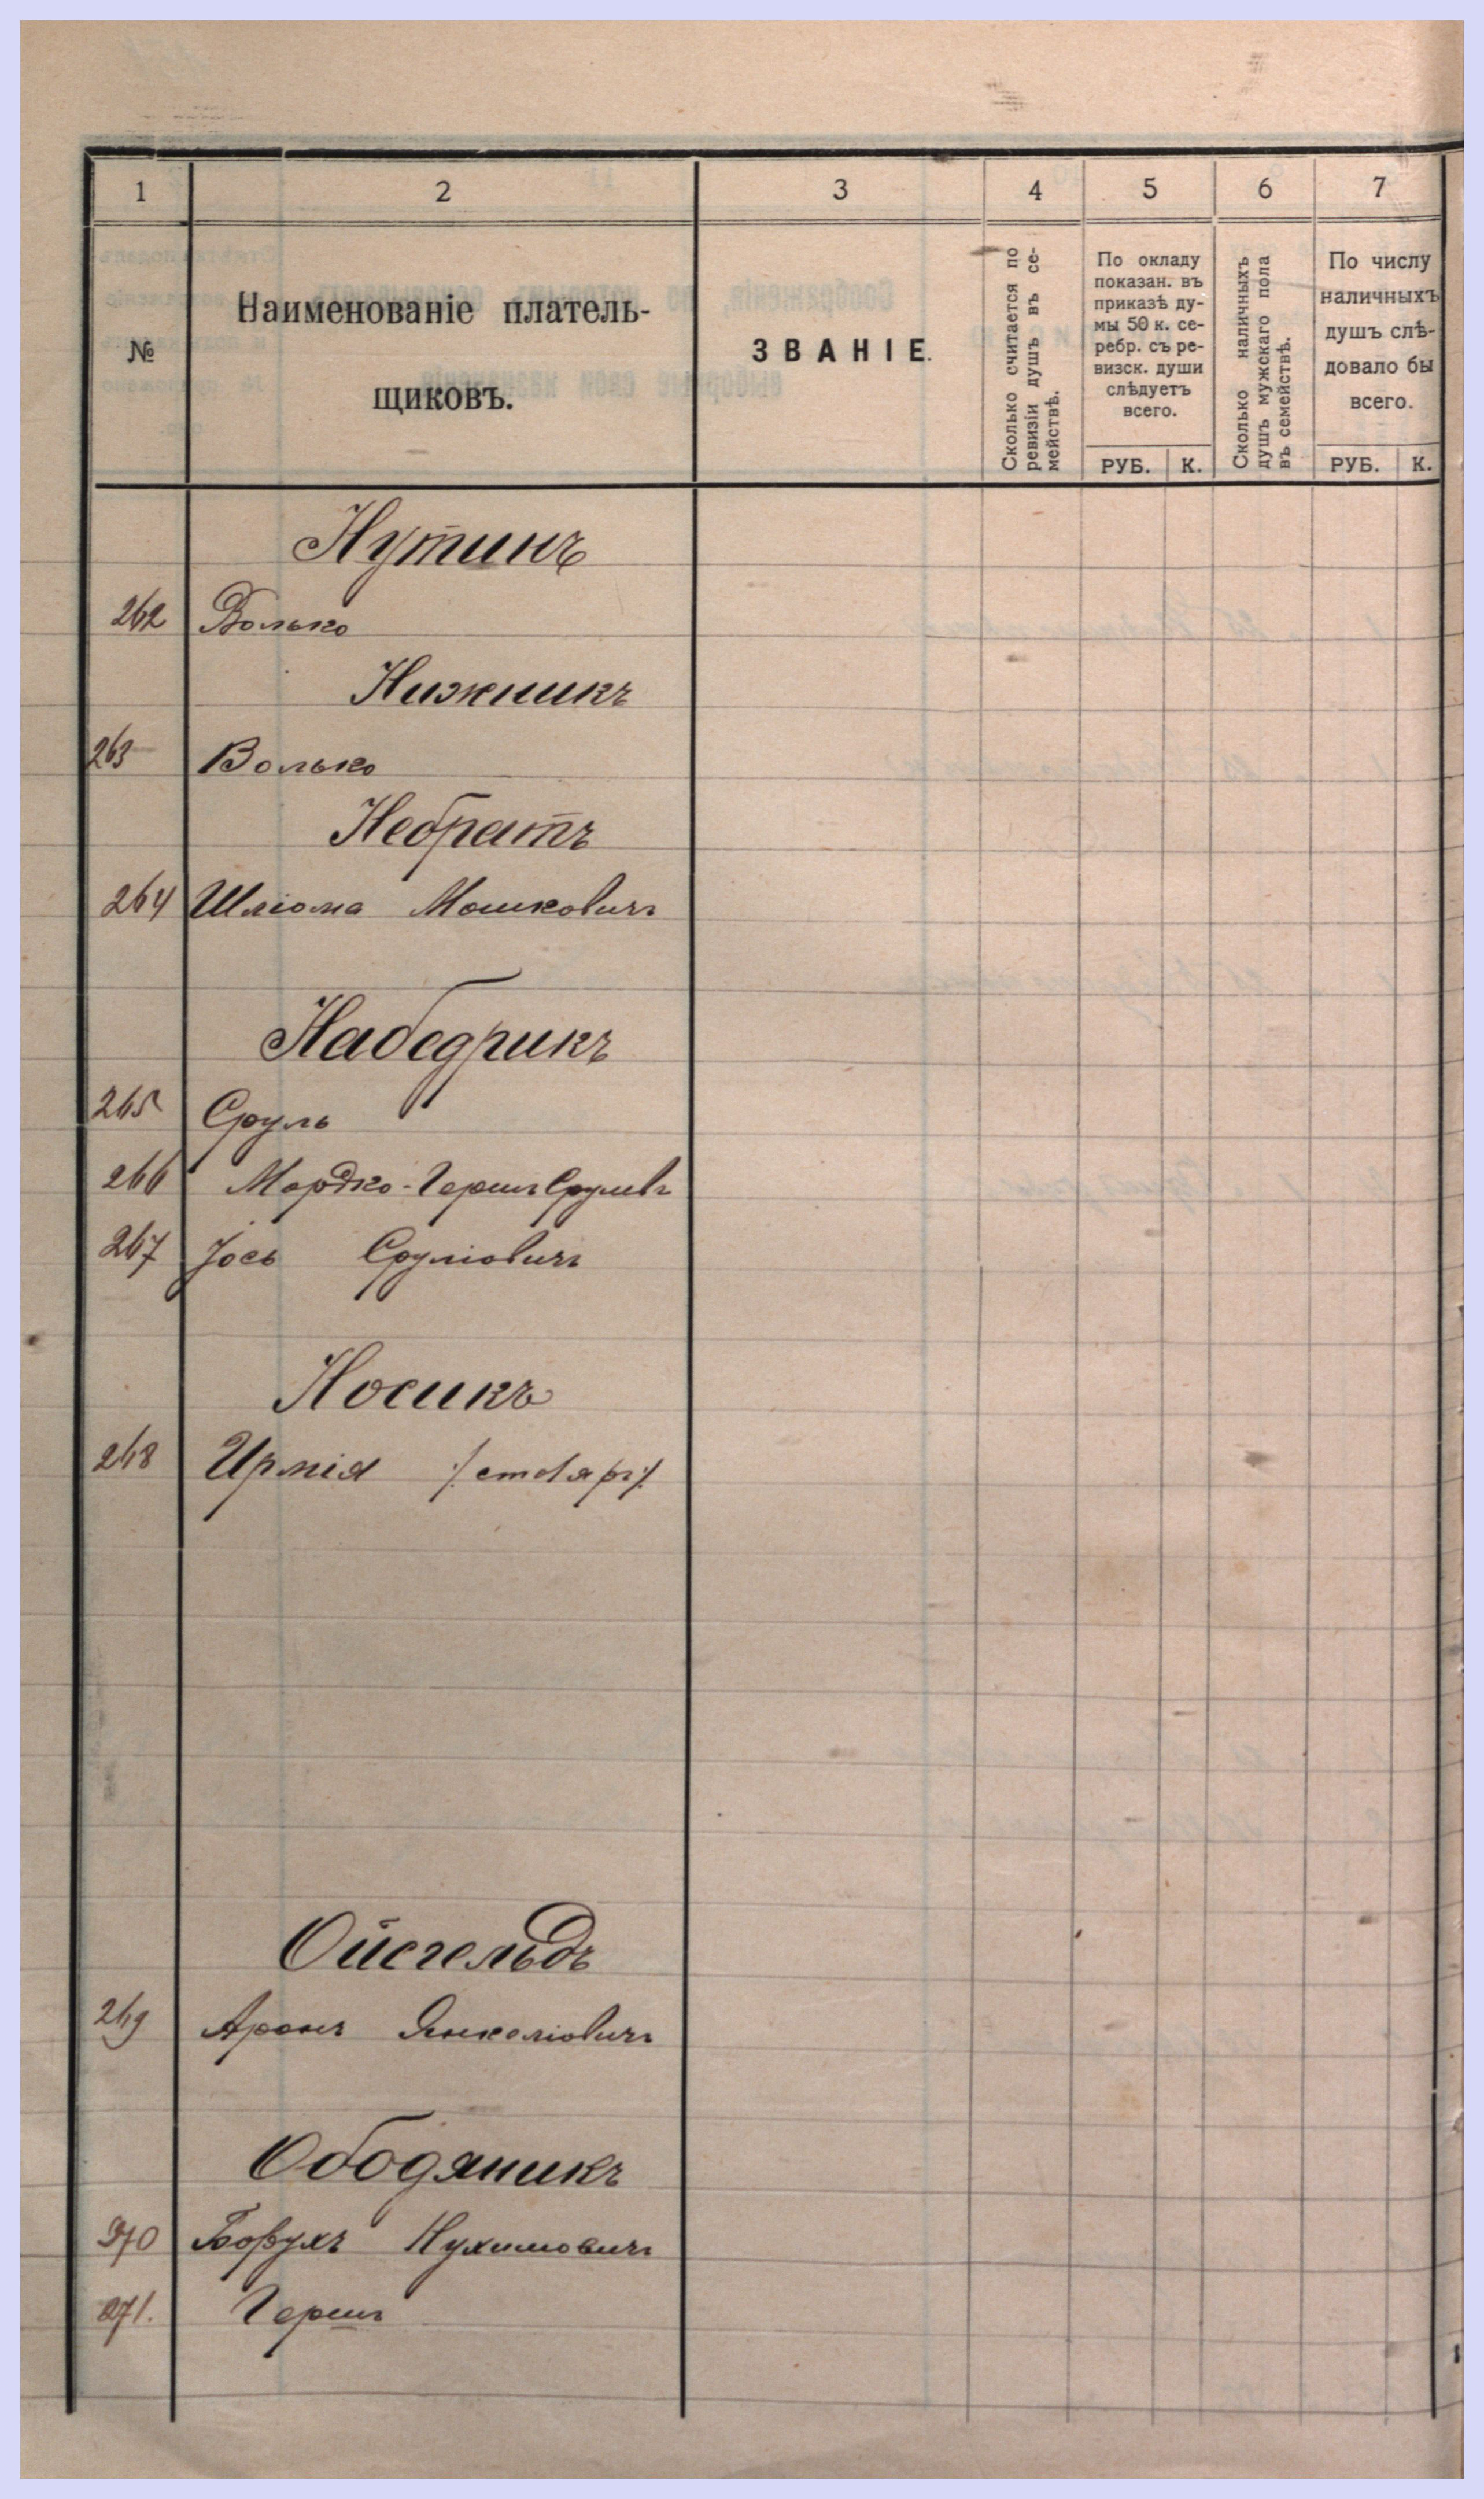 1 2 3 4 5 6 7
№
Наименованіе плательщиковъ.
ЗВАНІЕ.
Сколько считается по
ревизіи душъ въ се-
мействѣ.
По окладу
показан. въ
приказѣ ду-
мы 50 к. се-
ребр. съ ре-
визск. души
слѣдуетъ
всего.
РУБ. К.
Сколько наличныхъ
душъ мужскаго пола
въ семействѣ.
По числу
наличныхъ
душъ слѣ-
довало бы
всего.
РУБ. К.
Нутинъ
262 Волько
Нижникъ
263 Волько
Небратъ
264 Шліома Мошковичъ
Набедрикъ
265 Сруль
266 Мордко-Гершъ Срулевъ
267 Іось Сруліовичъ
Носикъ
268 Ирмія /:столяръ:/
Ойсгельдъ
269 Аронъ Янкеліовичъ
Ободяникъ
270 Борухъ Нухимовичъ
271. Гершъ